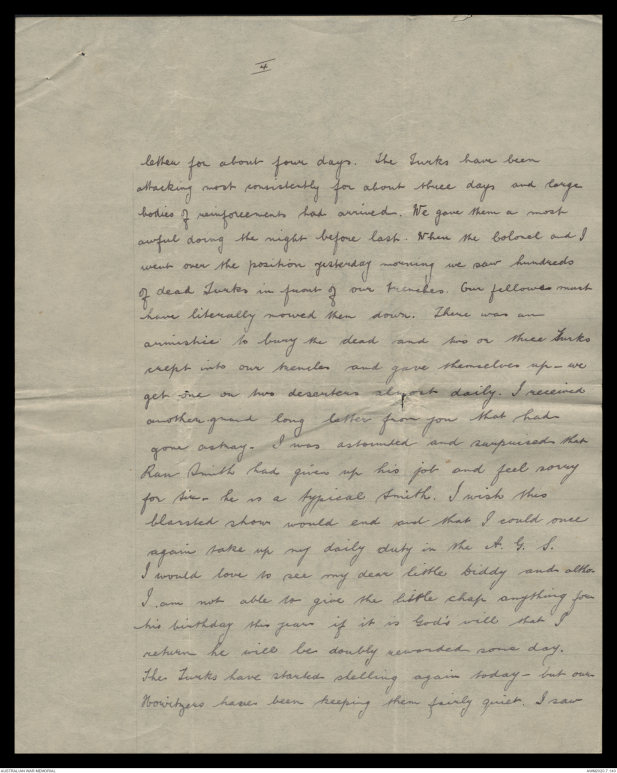 4
letter for about four days. The Turks have been
attacking most consistently for about three days and large
bodies of reinforcements had arrived. We gave them a most
awful doing the night before last. When the Colonel and I
went over the position yesterday morning we saw hundreds
of dead Turks in front of our trenches. Our fellows must
have literally mowed them down. There was an
armistice to bury the dead and two or three Turks
crept into our trenches and gave themselves up - we
get one or two deserters almost daily. I received
another grand long letter from you that had
gone astray. I was astounded and surprised that
Smith had given up his job and feel sorry
for - he is a typical Smith. I wish this
blarsted show would end and that I could once
again take up my daily duty in the A. G. S.
I would love to see my dear little Diddy and altho.
I am not able to give the little chap anything for
his birthday this year if it is God's will that I
return he will be doubly rewarded some day.
The Turks have started shelling again today - but our
Howitzers have been keeping them fairly quiet. I saw
AUSTRALIAN WAR MEMORIAL